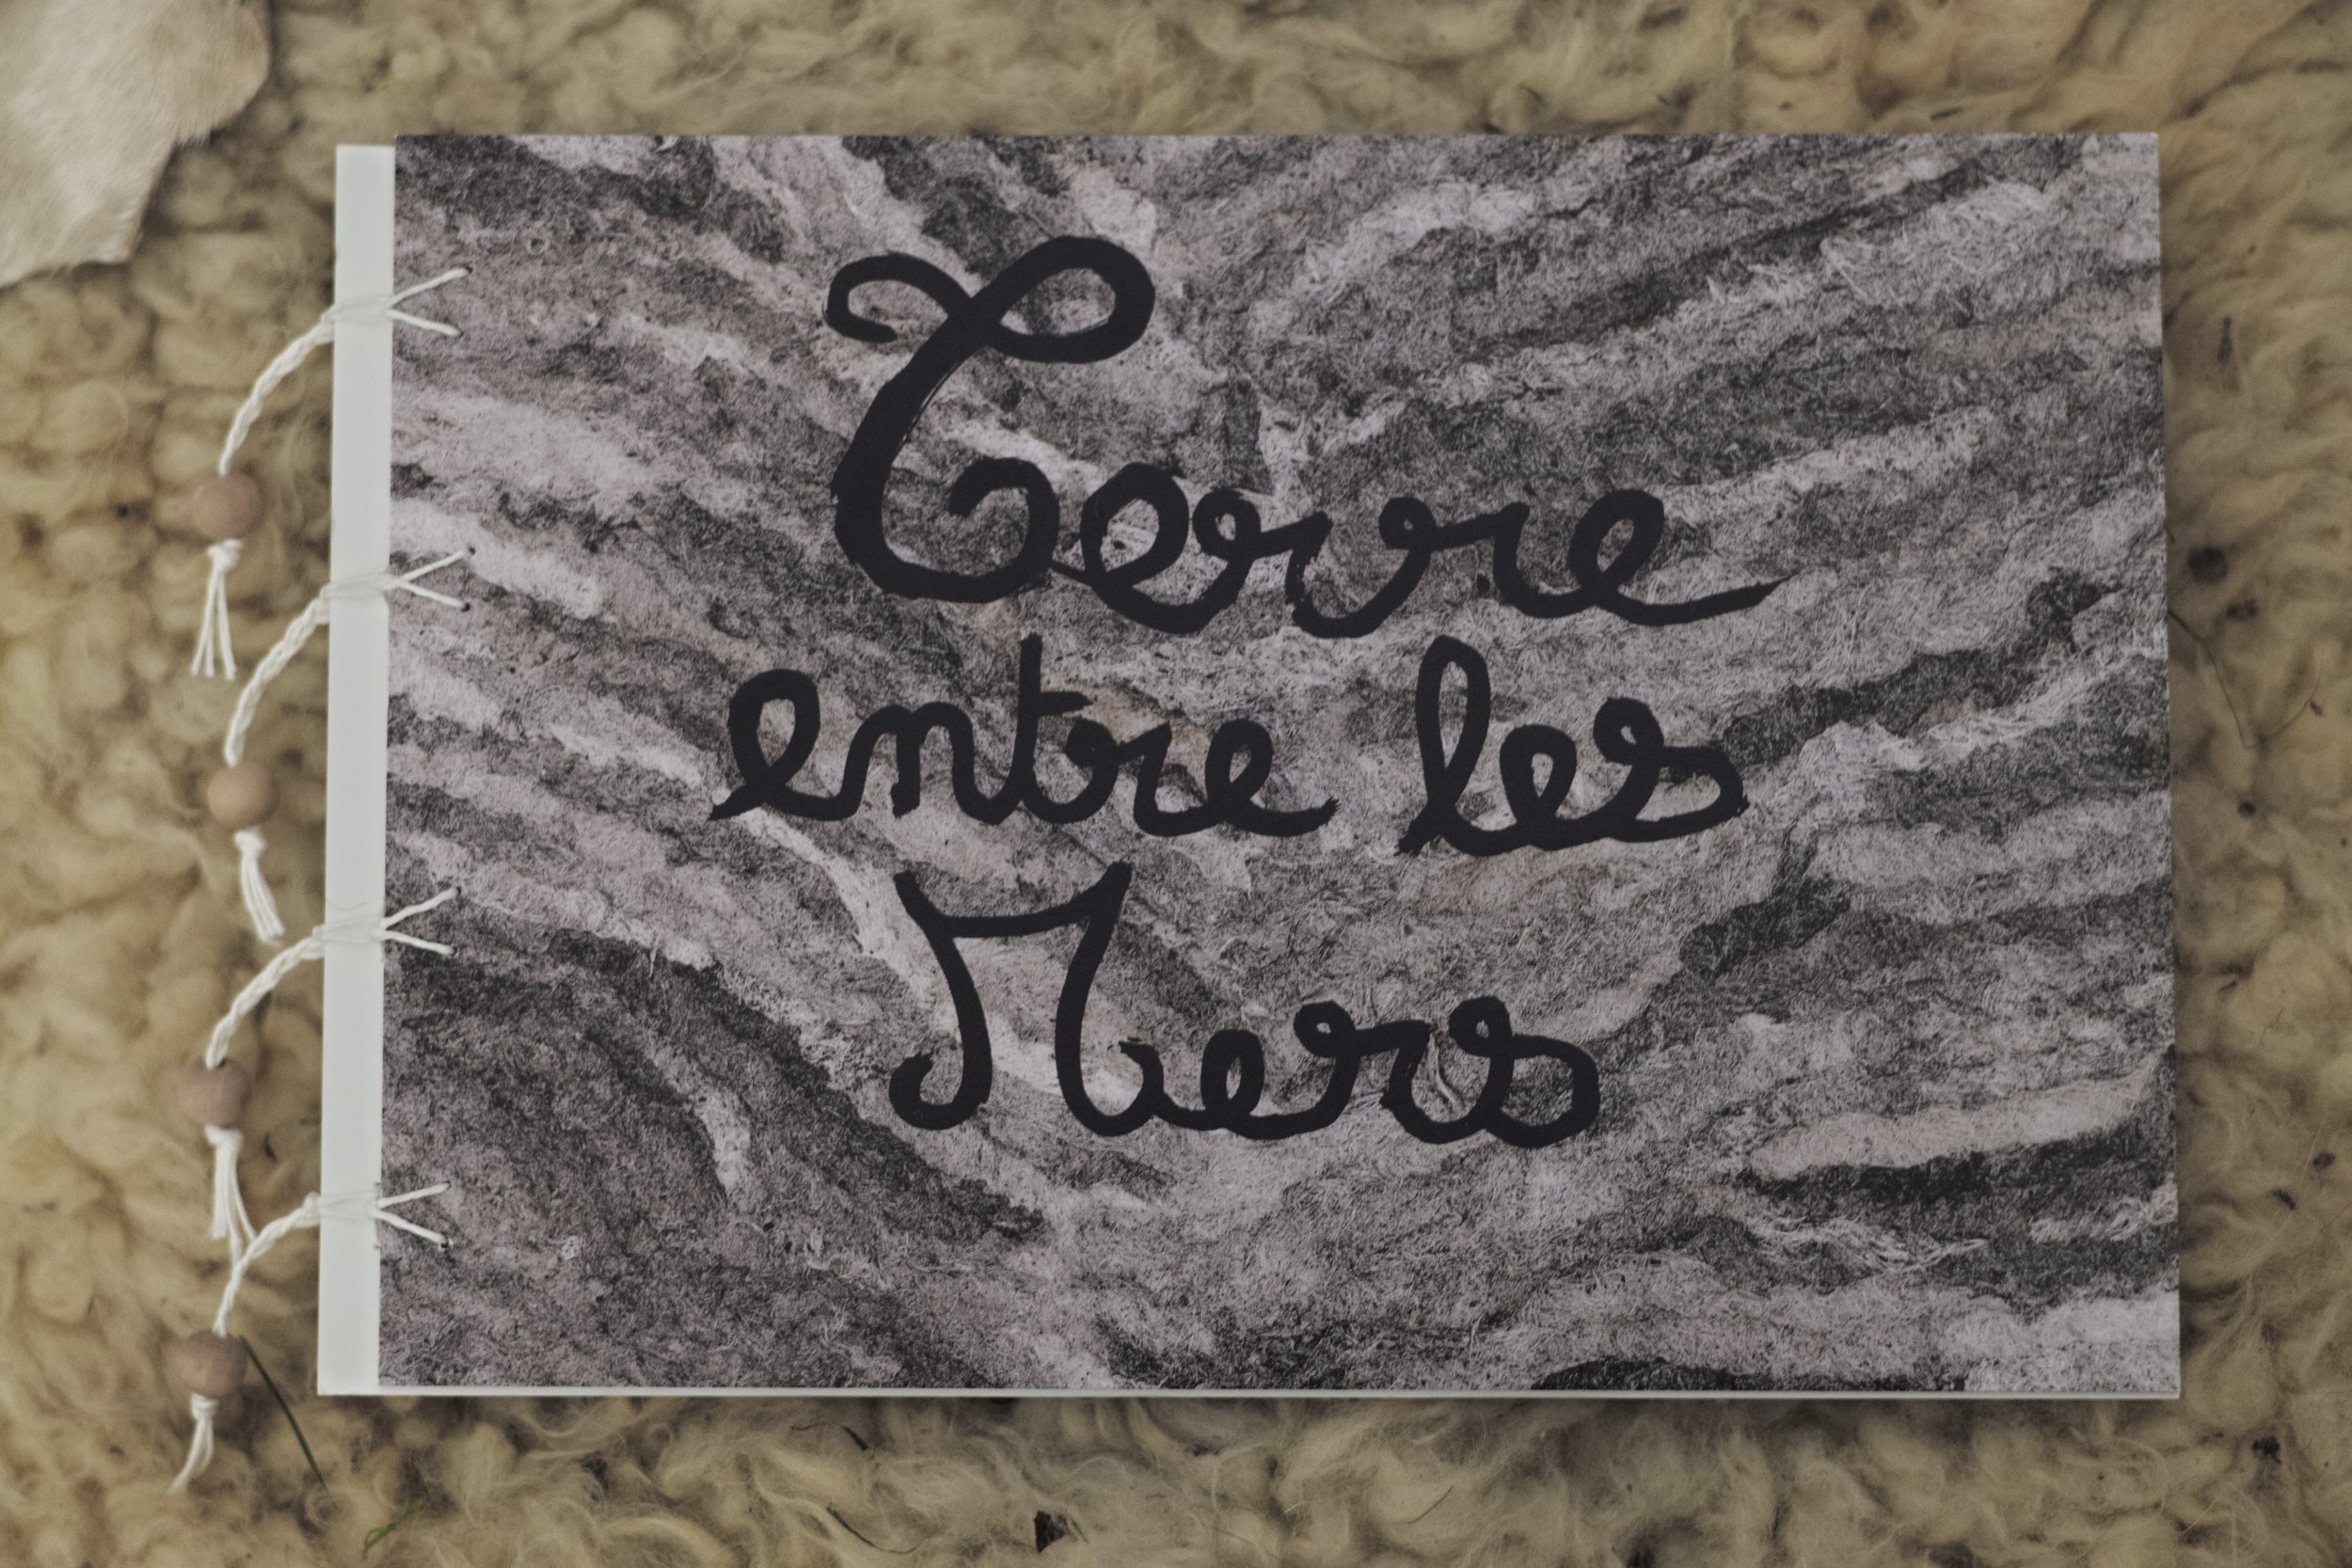 Terre
entre les
Mers